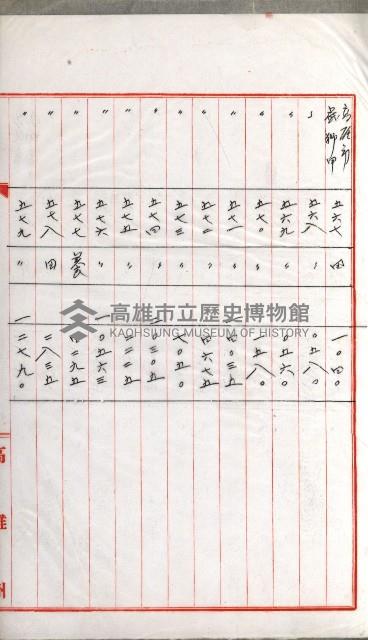 高雄市
戲獅甲 五六七 田 一〇四〇
〃 五六八 〃 〇五八〇
〃 五六九 〃 〇五六〇
〃 五七〇 〃 二五八〇
〃 五七一 〃 四〇三五
〃 五七二 〃 四六七五
〃 五七三 〃 七〇五〇
〃 五七四 〃 三〇五
〃 五七五 〃 二三三五
〃 五七六 〃 一〇五六三
〃 五七七 養 四二九五
〃 五七八 田 二八三五
〃 五七九 〃 一二七九〇
高雄州
高雄市立歷史博物館
KAOHSIUNG MUSEUM OF HISTORY